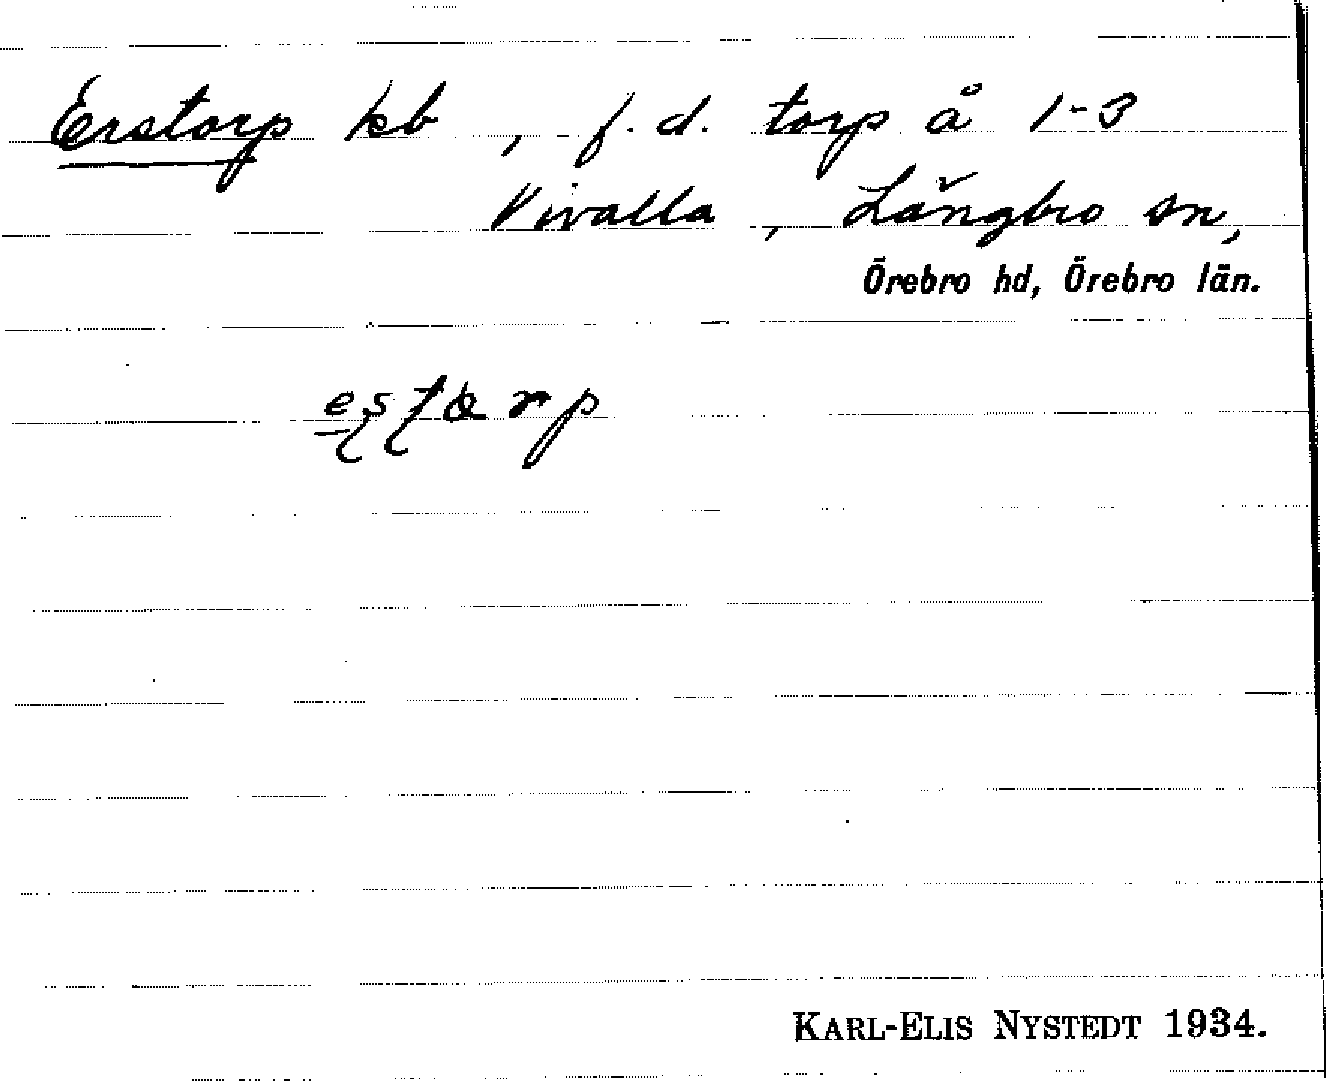 Erstorp kb, f.d. torp å 1-3
Vivalla, Långbro sn,
Örebro hd, Örebro län.
estorp
KARL-ELIS NYSTEDT 1934.